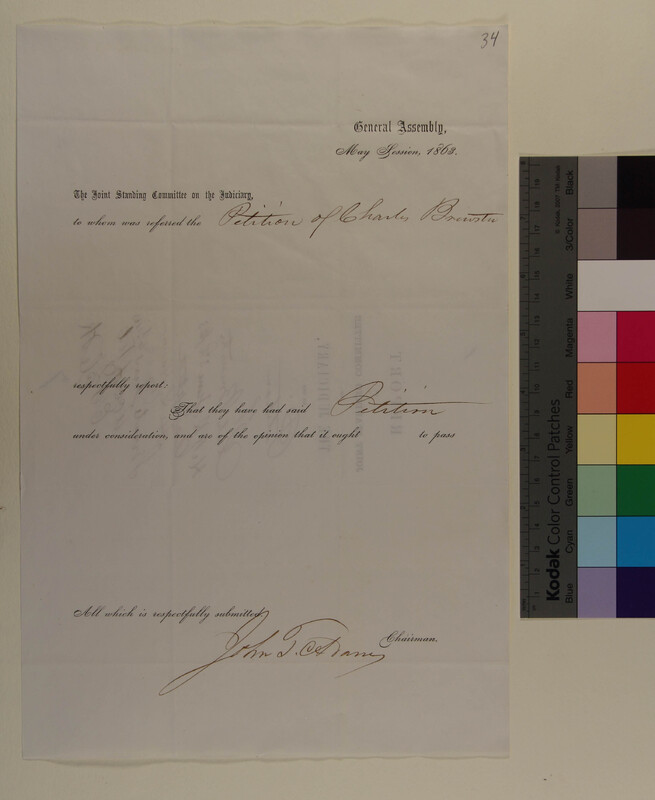 34
General Assembly,
May Session, 1863.
The Joint Standing Committee on the Judiciary,
to whom was referred the Petition of Charles Brewster
respectfully report:
That they have had said Petition
under consideration, and are of the opinion that it ought to pass
All which is respectfully submitted
John T. Adams Chairman.
Kodak Color Control Patches
© Kodak, 2007 TM: Kodak
Blue Cyan Green Yellow Red Magenta White 3/Color Black